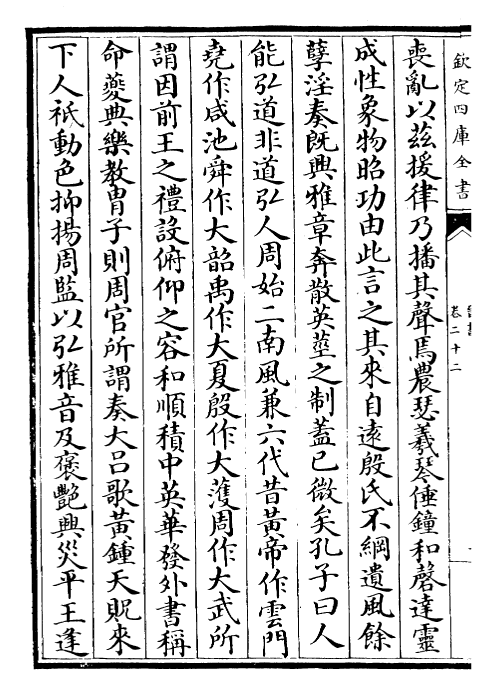 欽定四庫全書
卷二十二
喪亂以茲援律乃播其聲焉農瑟羲琴倕鐘和磬達靈
成性象物昭功由此言之其來自遠殷氏不綱遺風餘
孽淫奏既興雅章奔散英莖之制蓋已微矣孔子曰人
能弘道非道弘人周始二南風兼六代昔黃帝作雲門
堯作咸池舜作大韶禹作大夏殷作大濩周作大武所
謂因前王之禮設俯仰之容和順積中英華發外書稱
命夔典樂教胄子則周官所謂奏大呂歌黃鍾天貺來
下人祗動色抑揚周監以弘雅音及褒艷興災平王逢